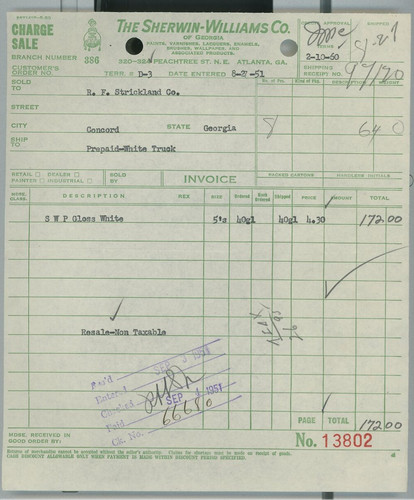 CHARGE SALE
THE SHERWIN-WILLIAMS CO.
OF GEORGIA
PAINTS, VARNISHES, LACQUERS, ENAMELS,
BRUSHES, WALLPAPER, AND
ASSOCIATED PRODUCTS.
APPROVAL
SHIPPED
2-10-60
8-27
BRANCH NUMBER 386
320-324 PEACHTREE ST. N. E. ATLANTA, GA.
SHIPPING RECEIPT NO. 97120
CUSTOMER'S ORDER NO.
TERR. # D-3 DATE ENTERED 8-27-51
SOLD TO R. F. Strickland Co.
No. of Pcs.
RECEIPT
AMOUNT
STREET
CITY Concord STATE Georgia
8 640
SHIP TO Prepaid-White Truck
RETAIL DEALER
PAINTER INDUSTRIAL
SOLD BY
INVOICE
PACKED CARTONS
HANDLERS INITIALS
MDSE. CLASS. DESCRIPTION REX SIZE Ordered Back Ordered Shipped PRICE AMOUNT TOTAL
S W P Gloss White 5's 40gl 40gl 4.30 172.00
Resale-Non Taxable
Rec'd SEP 3 1951
Entered
Checked SEP 1951
Paid 66680
Ck. No.
PAGE TOTAL 172.00
MDSE. RECEIVED IN GOOD ORDER BY:
No. 13802
Return of merchandise cannot be accepted without the seller's authority. Claims for shortage must be made on receipt of goods.
CASH DISCOUNT ALLOWABLE ONLY WHEN PAYMENT IS MADE WITHIN DISCOUNT PERIOD SPECIFIED.